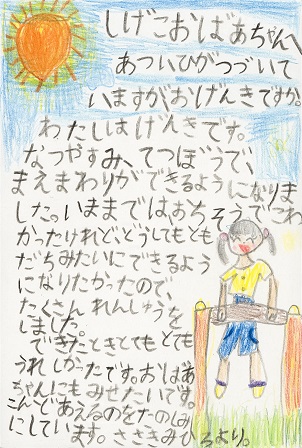 しげこおばあちゃんへ
あついひがつづいて
いますがおげんきですか。
わたしはげんきです。
なつやすみ、てつぼうで、
まえまわりができるようになりま
した。いままではおちそうでこわ
かったけれど、どうしてもとも
だちみたいにできるよう
になりたかったので、
たくさんれんしゅうを
しました。
できたときとてもとても
うれしかったです。おばあ
ちゃんにもみせたいです。
こんどあえるのをたのしみ
にしています。ささきみひろより。